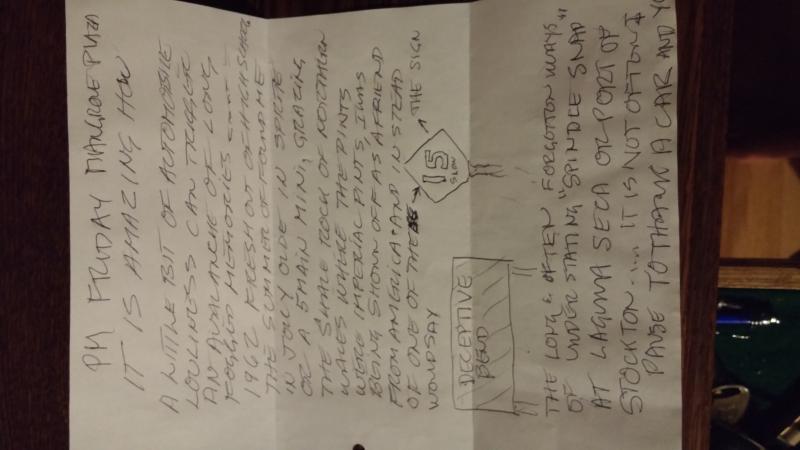 PM FRIDAY MANGROVE PLAZA
IT IS AMAZING HOW
A BIT OF AUTOMOBILE
LOVLINESS CAN TRIGGER
AN AVALANCHE OF LONG
FOGGED MEMORIES ----
1962 FRESH OUT OF HIGH SCHOOL
THE SUMMER OF FOUND ME
IN JOLY OLDE IN SPRITE
OR A 5 MAIN MINI, GRAZING
THE SHALE ROCK OF NORTHERN
WALES WHERE THE PINTS
WERE IMPERIAL PINTS, I WAS
BEING SHOWN OFF AS A FRIEND
FROM AMERICA AND IN STEAD
OF ONE OF THE
15
SLOW
THE SIGN
WOULDSAY
DECEPTIVE
BEND
THE LONG & OFTEN FORGOTTON WAYS
OF UNDER STATING "SPINDLE SNAP"
AT LAGUNA SECA OR PORT OF
STOCKTON..... IT IS NOT OFTEN I
PAUSE TO THANK A CAR AND